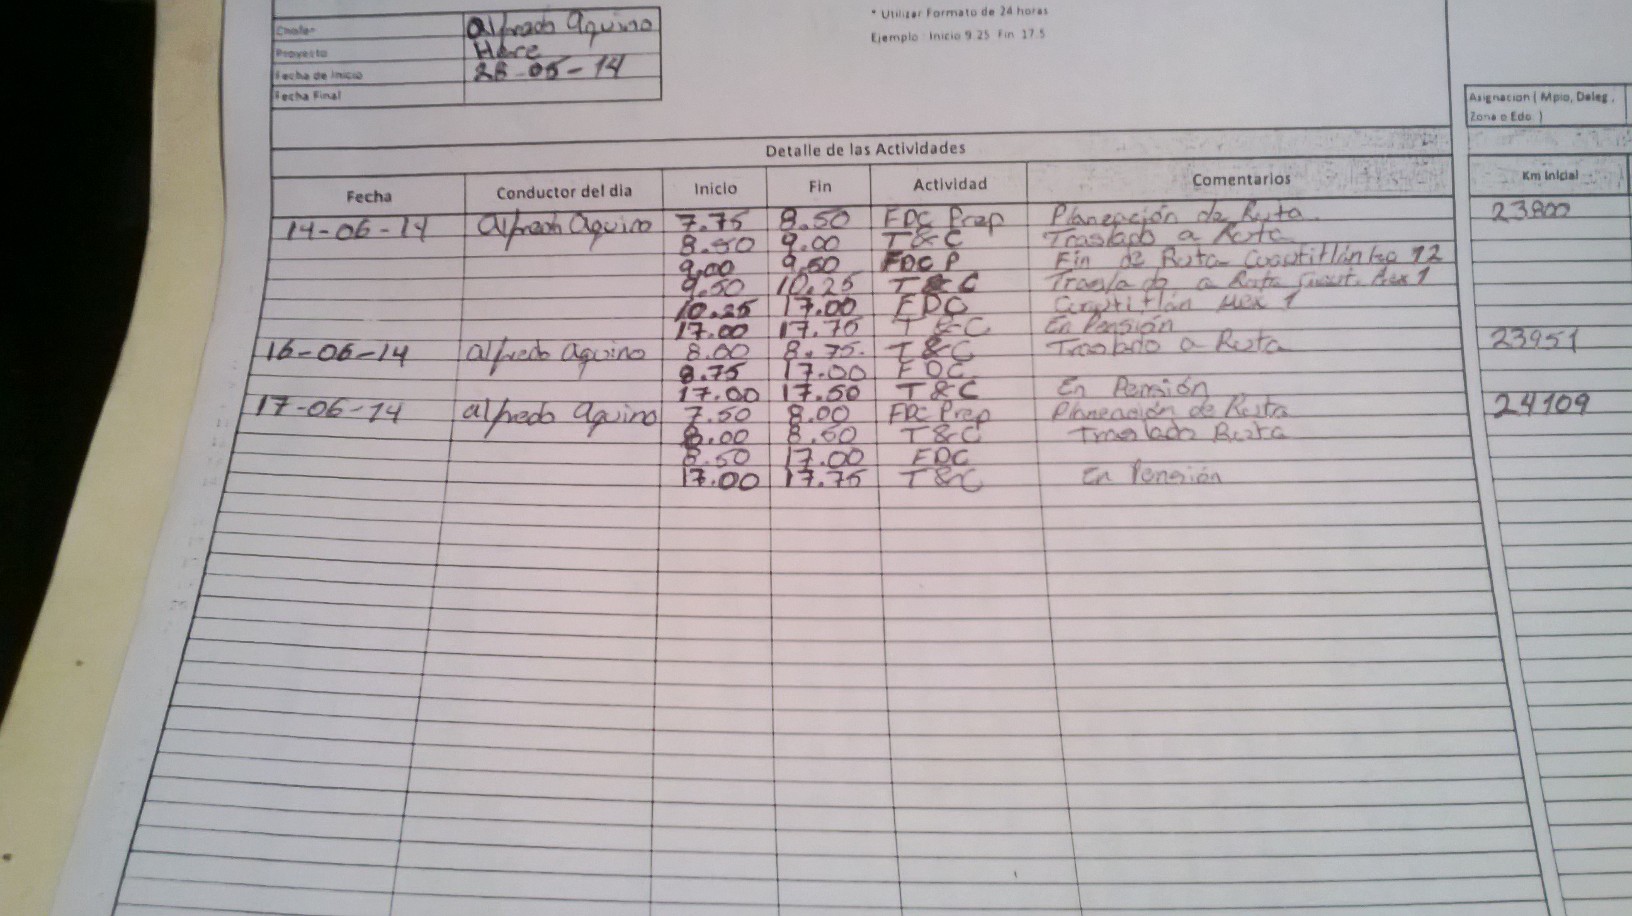 * Utilizar Formato de 24 horas
Ejemplo Inicio 9.25 Fin 17.5
Chofer Alfredo Aquino
Proyecto Here
Fecha de Inicio 28-05-14
Fecha Final
Asignacion ( Mpio, Deleg ,
Zona o Edo. )
Detalle de las Actividades
Fecha Conductor del dia Inicio Fin Actividad Comentarios Km Inicial
14-06-14 Alfredo Aquino 7.75 8.50 FDC Prep Planeación de Ruta 23800
8.50 9.00 T&C Traslado a Ruta
9.00 9.50 FDC P Fin de Ruta 12
9.50 10.25 T&C Traslado a Ruta Cuaut. Mex 1
10.25 17.00 FDC Cuautitlán Mex 1
17.00 17.75 T&C En Pensión
16-06-14 Alfredo Aquino 8.00 8.75 T&C Traslado a Ruta 23951
8.75 17.00 FDC
17.00 17.50 T&C En Pensión
17-06-14 Alfredo Aquino 7.50 8.00 FDC Prep Planeación de Ruta 24109
8.00 8.50 T&C Traslado Ruta
8.50 17.00 FDC
17.00 17.75 T&C En Pensión